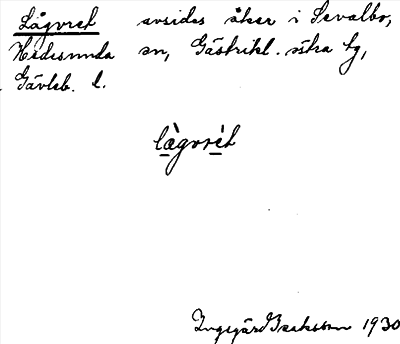 Lågvret avsides åker i Sevalbo,
Hedesunda sn, Gästrikl. östra tg,
Gävleb. l.
lǽgvrèt
Ingegärd Isaksson 1930